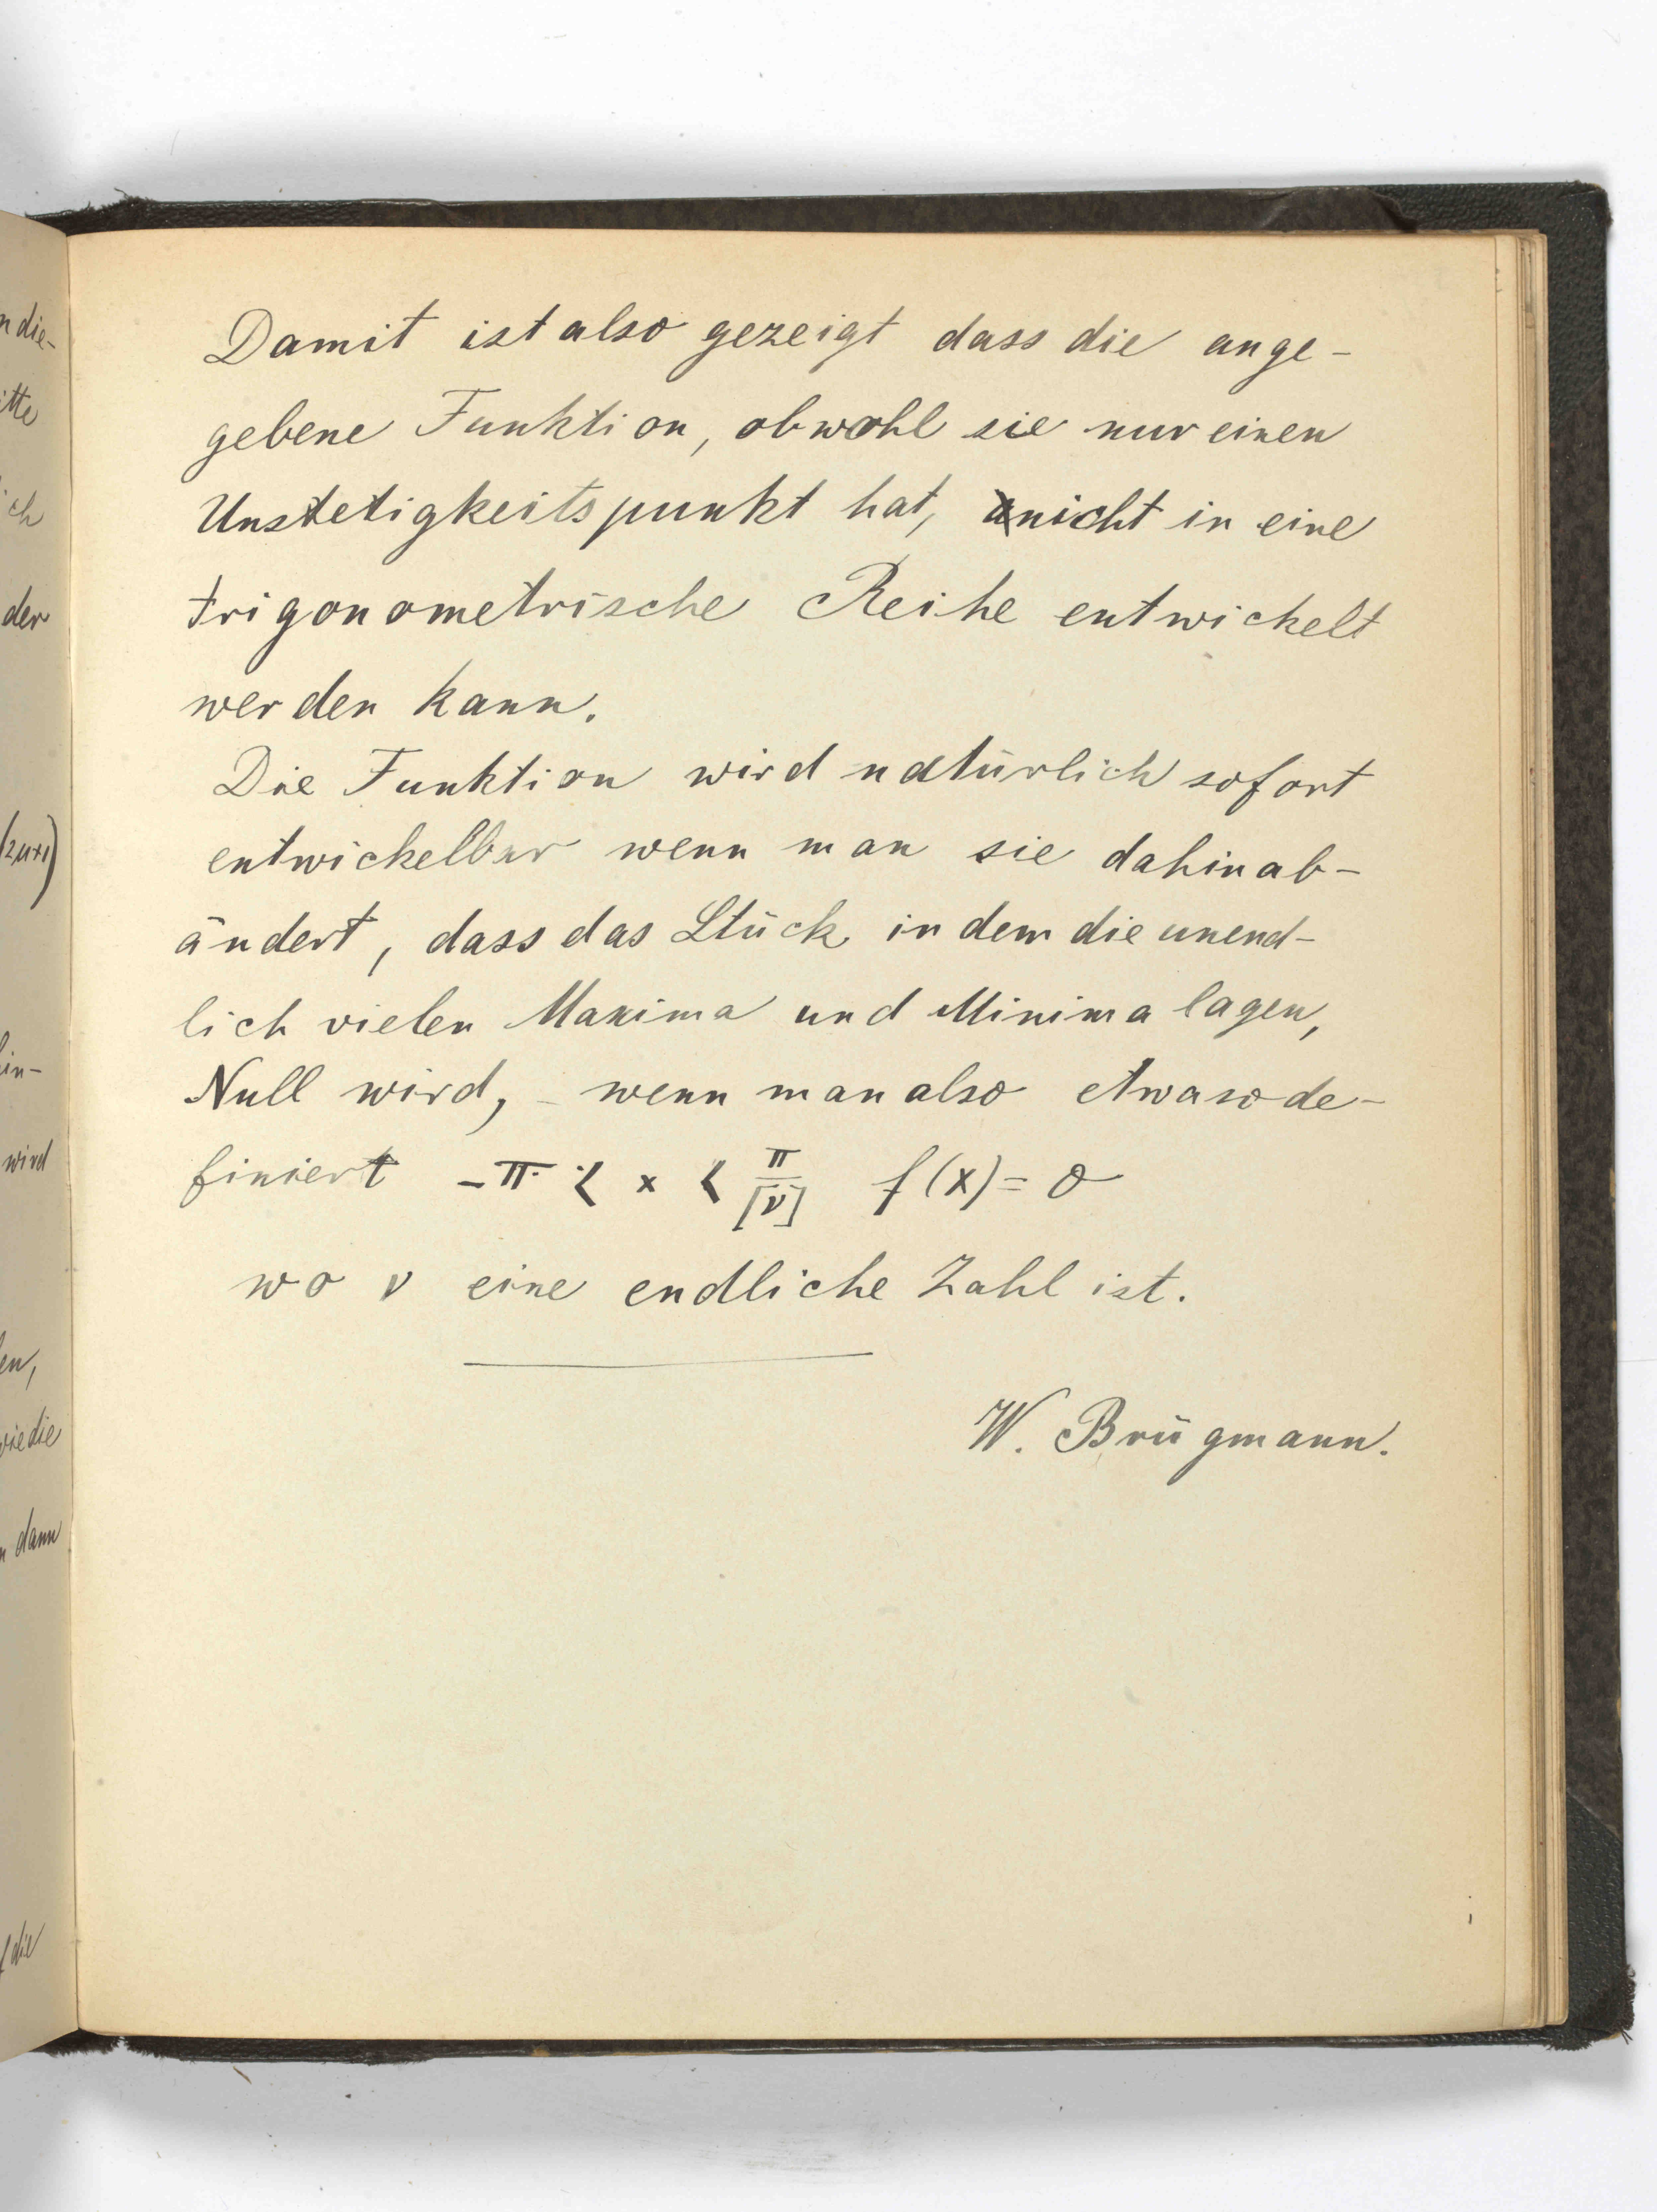 Damit ist also gezeigt dass die ange-
gebene Funktion, obwohl sie nur einen
Unstetigkeitspunkt hat, nicht in eine
trigonometrische Reihe entwickelt
werden kann.
Die Funktion wird natürlich sofort
entwickelbar wenn man sie dahin ab-
ändert, dass das Stück in dem die unend-
lich vielen Maxima und Minima lagen,
Null wird, - wenn man also etwa so de-
finiert -π < x < π/[ν] f(x) = 0
wo ν eine endliche Zahl ist.
W. Brügmann.
n die-
itte
ich
der
(2μ+1)
hin-
wird
en,
wie die
dann
die